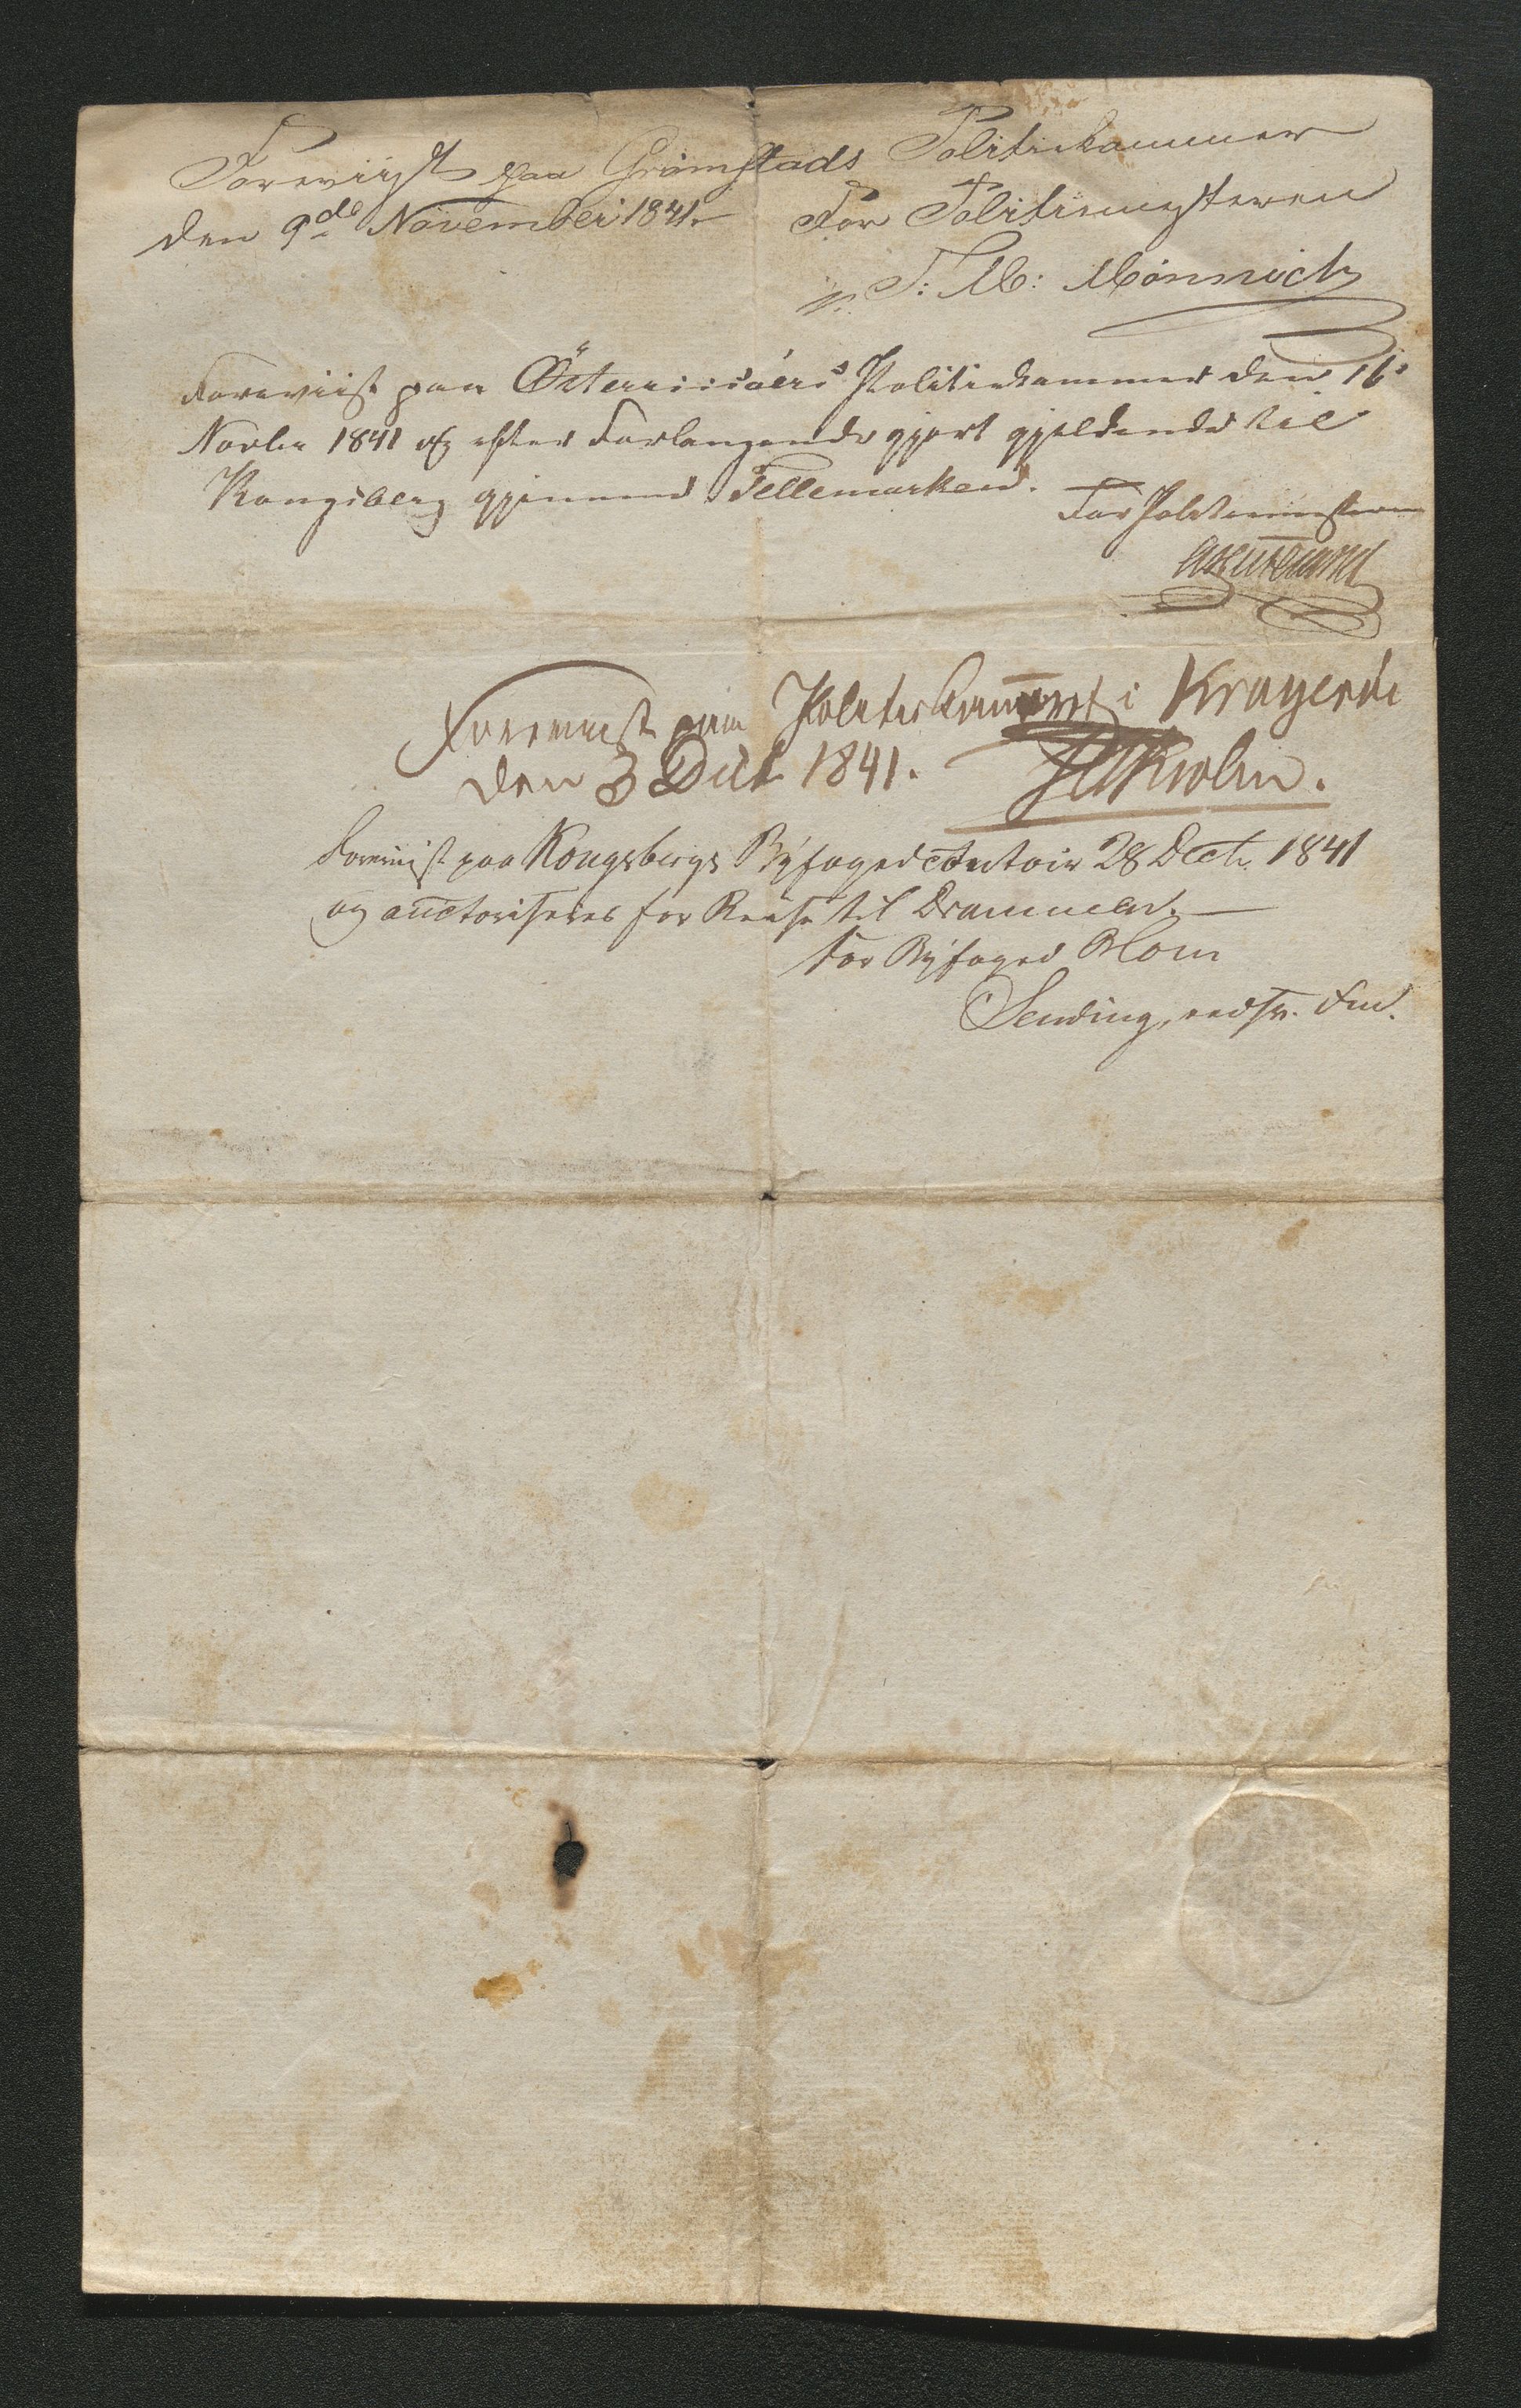 Foreviist paa Grimstads Politiekammer
den 9de November 1841. For Politiemesteren
T: M: Mönnich
Foreviist paa Österriisöers Politiekammer den 16
Novbr 1841 og efter Forlangende gjort gjeldende til
Kongsberg gjennem Tellemarken.
For Politiemesteren
Foreviist paa Politiekammeret i Kragerøe
den 3 Decbr 1841.
Foreviist paa Kongsbergs Byfogedcontoir 28 Decbr 1841
og auctoriseres for Reise til Drammen.
For Byfoged Blom
Sending,